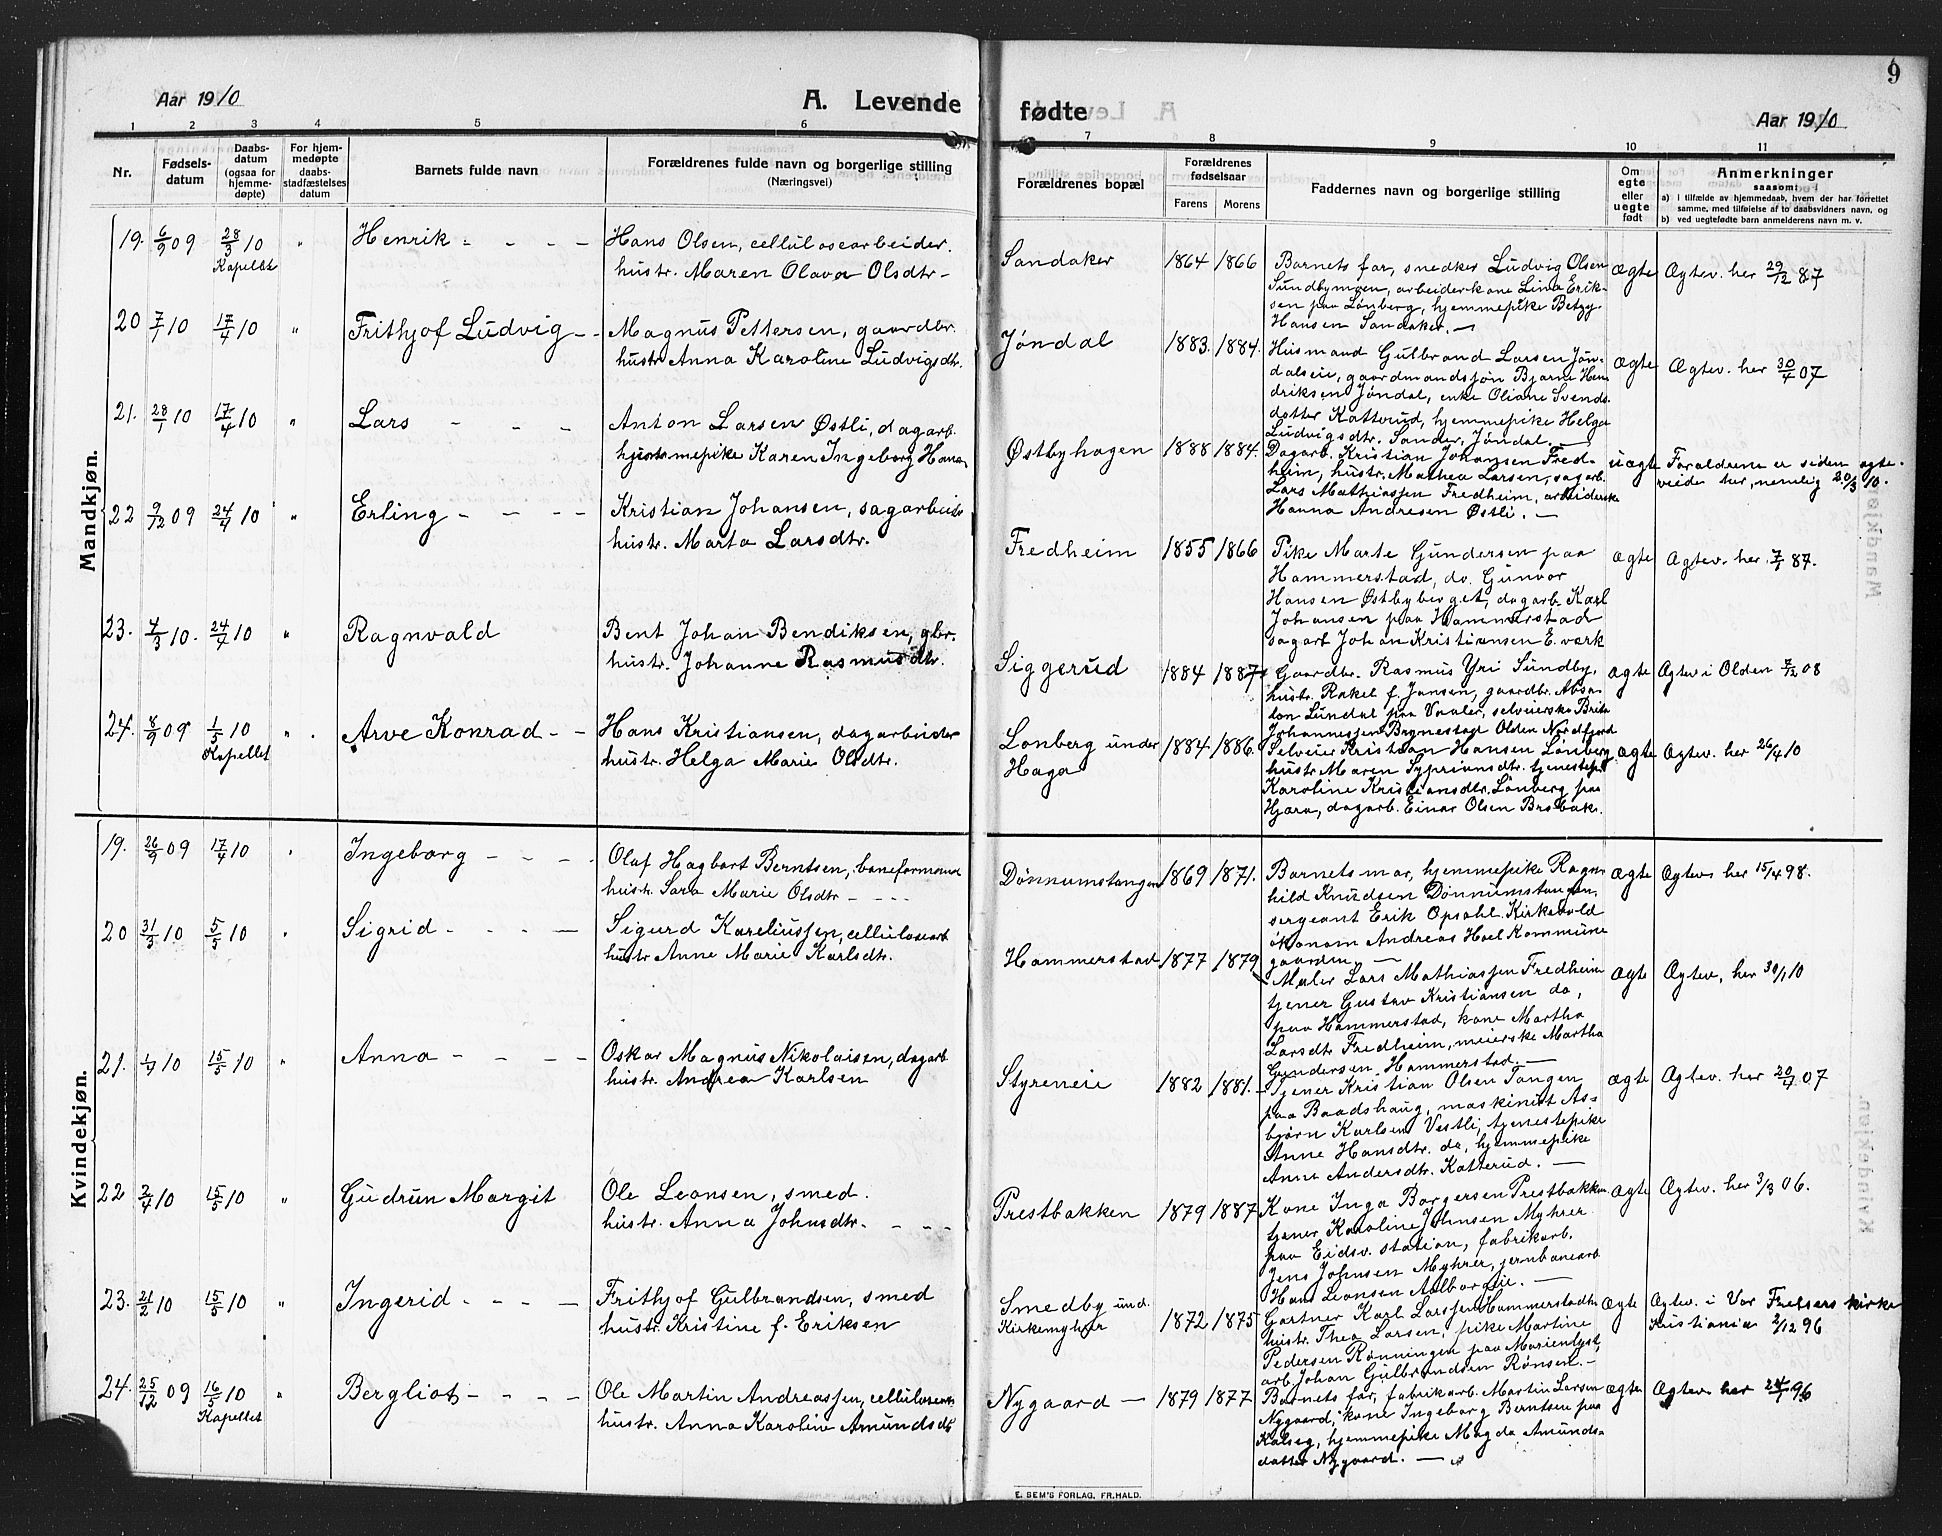 9
Aar 1910
A. Levende fødte
Aar 1910
1 2 3 4 5 6 7 8 9 10 11
Nr.
Fødsels-
datum
Daabs-
datum
(ogsaa for
hjemme-
døpte)
For hjem-
medøpte
daabs-
stadfæstelses
datum
Barnets fulde navn
Forældrenes fulde navn og borgerlige stilling
(Næringsvei)
Forældrenes bopæl
Forældrenes
fødselsaar
Farens Morens
Faddernes navn og borgerlige stilling
Om
egte
eller
uegte
født
Anmerkninger
saasom:
a) i tilfælde av hjemmedaab, hvem der har forrettet
samme, med tilføielse af to daabsvidners navn, og
b) ved uegtefødte barn anmelderens navn m. v.
Mandkjøn.
19. 6/9 09 28/3 10 Kapellet " Henrik - - - -
Hans Olsen, cellulosearbeider.
hustr. Maren Olava Olsdtr -
Sandaker 1864 1866
Barnets far, snedker Ludvig Olsen
Sundbymoen, arbeiderkone Lina Erik-
sen paa Lønberg, hjemmepike Betzy
Hansen Sandaker. -
ægte Ægtev. her 29/12 87
20 7/1 10 17/4 10 " Frithjof Ludvig - -
Magnus Pettersen, gaardbr.
hustr Anna Karoline Ludvigsdtr.
Jøndal 1883. 1884.
Husmand Gulbrand Larsen Jøn-
dalseie, gaardmandsøn Bjarne Hen
driksen Jøndal, enke Oliane Svends
datter Kattrud, hjemmepike Helga
Ludvigsdtr. Sander, Jøndal. -
ægte Ægtev. her 30/4 07
21. 28/1 10 17/4 10 " Lars - - -
Anton Larsen Østli, dagarb.
hjemmepike Karen Ingeborg Hans
Østbyhagen 1888 1884.
Dagarb. Kristian Johansen Fred-
heim, hustr. Mathea Larsen, sagarb.
Lars Mathiassen Fredheim, arbeiderske
Hanna Andresen Østli. -
uægte Forældrene er siden ægte-
viede her, nemlig 20/3 10.
22 9/12 09 24/4 10 " Erling - - - -
Kristian Johansen, sagarbeide
hustr. Marta Larsdtr.
Fredheim 1855 1866
Pike Marte Gundersen paa
Hammerstad, do. Gunvor
Hansen Østbyberget, dagarb. Karl
Johansen paa Hammerstad
sagarb Johan Kristiansen E. værk
ægte Ægtev. her. 7/1 87.
23. 4/3 10. 24/4 10 " Ragnvald
Bent Johan Bendiksen, gbr.
hustr. Johanne Rasmusdtr.
Siggerud 1884 1887
Gaardbr. Rasmus Yri Sundby,
hustr. Rakel f. Jansen, gaardbr. Absa-
lon Lundal paa Vaaler, selveierske Brita
Johannessen Brynestad Olden Nordfjord
ægte Ægtev i Olden 7/2 08
24. 8/9 09 1/5 10 Kapellet " Arve Konrad - -
Hans Kristiansen, dagarbeider
hustr. Helga Marie Olsdtr.
Lønberg under
Haga
1884 1886.
Selveier Kristian Hansen Lønberg
hustr Maren Sypriansdtr. tjenestepi
Karoline Kristiansdtr. Lønberg paa
Hjæra, dagarb. Einar Olsen Brobak.
ægte Ægtev. her 26/4 10
Kvindekjøn.
19. 26/9 09 17/4 10 " Ingeborg - - - -
Olaf Hagbart Berntsen, baneformand
hustr. Sara Marie Olsdtr - - - -
Dønnumstangen 1869 1871.
Barnets mor, hjemmepike Ragn
hild Knudsen Dønnumstangen,
sergeant Erik Opsahl Kirkevold
økonom Andreas Hoel Kommune
gaarden. -
ægte Ægtev her 15/4 98.
20 31/3 10 5/5 10 " Sigrid - - - -
Sigurd Kareliussen, cellulosearb
hustr Anne Marie Karlsdtr.
Hammerstad 1877 1879
Maler Lars Mathiassen Fredheim
tjener Gustav Kristiansen do,
paa Hammerstad, kone Martha
Larsdtr Fredheim, meierske Martha
Gundersen Hammerstad. -
ægte Ægtev, her 30/1 10
21. 1/4 10 15/5 10 " Anna - - - -
Oskar Magnus Nikolaisen, dagarb
hustr. Andrea Karlsen
Styreneie 1882 1881.
Tjener Kristian Olsen Tangen
paa Baadshaug, maskinist As-
bjørn Karlsen Vestli, tjenestepike
Anne Hansdtr. do, hjemmepike
Anna Andersdtr. Katterud. -
ægte Ægtev. her 20/4 07
22 2/4 10 15/5 10 " Gudrun Margit
Ole Leonsen, smed.
hustr. Anna Johnsdtr. - - -
Prestbakken 1879 1887
Kone Inga Borgersen Prestbakken
tjener Karoline Johnsen Myhrer
paa Eidsv. station, fabrikarb.
Jens Johnsen Myhrer, jernbanearb
Hans Leonsen Aalborgeie. -
ægte Ægtev. her 3/3 06.
23. 21/2 10 15/5 10 " Ingerid - - - -
Frithjof Gulbrandsen, smed
hustr. Kristine f. Eriksen
Smedby und.
Kirkemyhrer
1872 1875
Gartner Karl Larssen Hammerstadhn
hustr. Thea Larsen, pike Martine
Pedersen Rønningen paa Marienlyst,
arb. Johan Gulbrandsen Rønsen. -
ægte Ægtev. i Vor Frelsers kirke
Kristiania 2/12 96
24. 25/12 09 16/5 10 Kapellet " Bergliot - - - -
Ole Martin Andreassen, cellulosearb
hustr. Anna Karoline Amundsdtr
Nygaard - 1879 1877
Barnets far, fabrikarb. Martin Larsen
Nygaard, kone Ingeborg Berntsen paa
Kalseg, hjemmepike Magda Amunds-
datter Nygaard. -
ægte Ægtev. her 96
E. SEM'S FORLAG, FR.HALD.